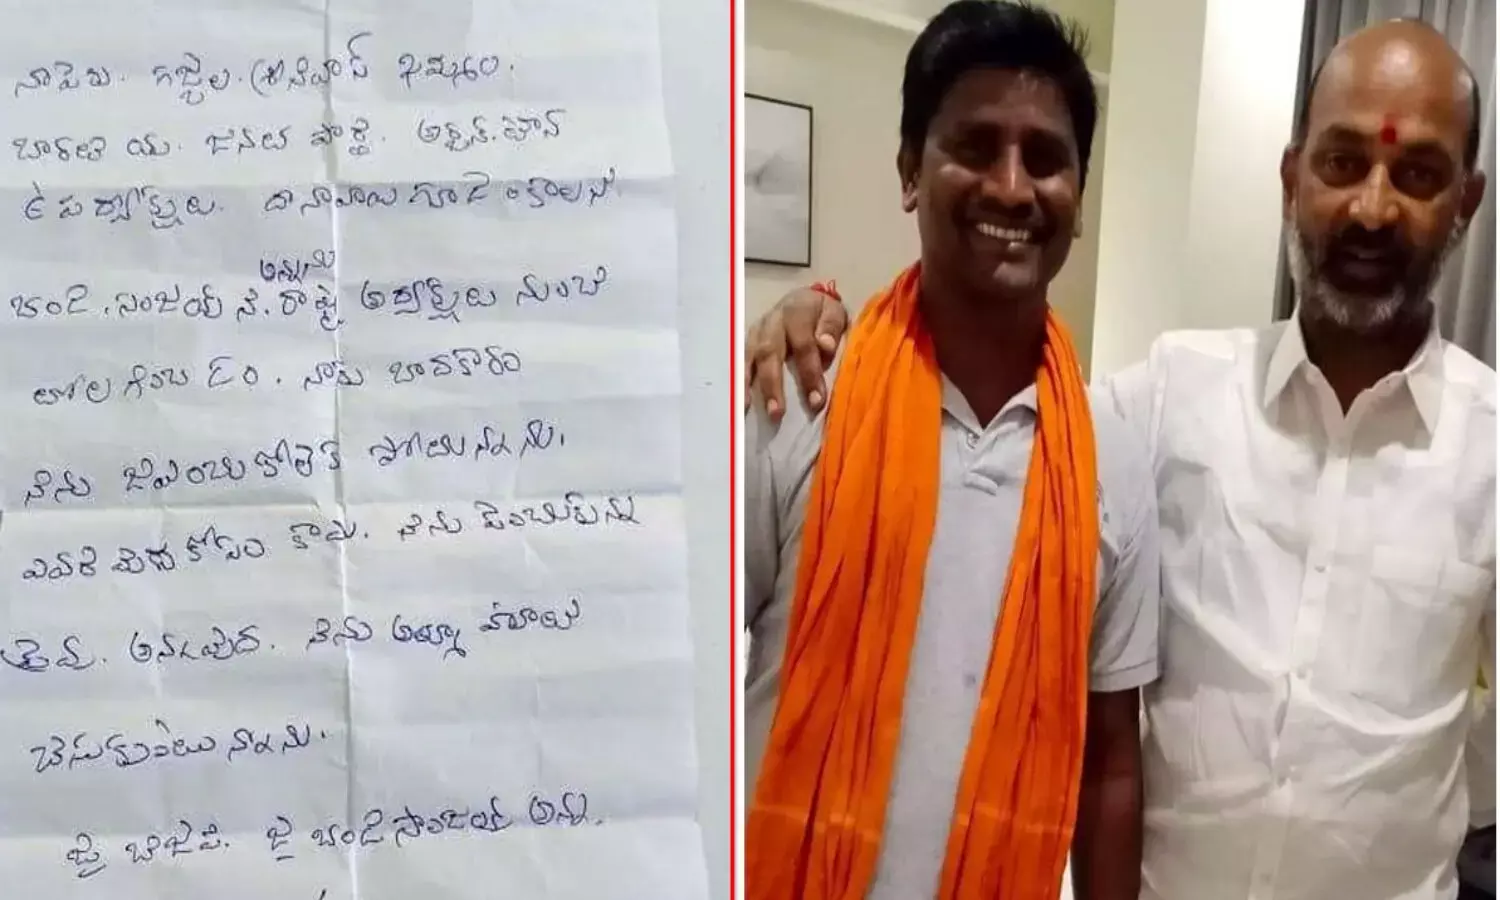 నాపేరు. గజ్జల. శ్రీనివాస్ ఖమ్మం.
బారతి య. జనత పార్టి. అర్బన్. టౌన్
ఉ ప ద్యక్షులు.
అన్నను
బండి. సంజయ్ ని. రాష్ట్ర అద్యక్షులు నుంచి
తోల గించ డం. నాకు బాదకారం
నేను జీవించుకోలేక పోతున్నాను.
ఎవరి మిద కోపం కాదు. నేను
దైవం. నేను ఆత్మా హత్యా
చేసుకుంటు న్నాను.
జై బిజెపి. జై బండి సంజయ్ అన్న.